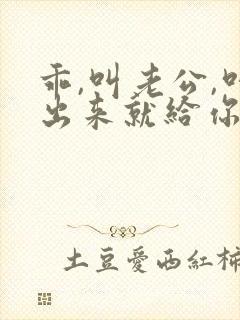 乖,叫老公,叫
出来就给你
土豆爱西红柿